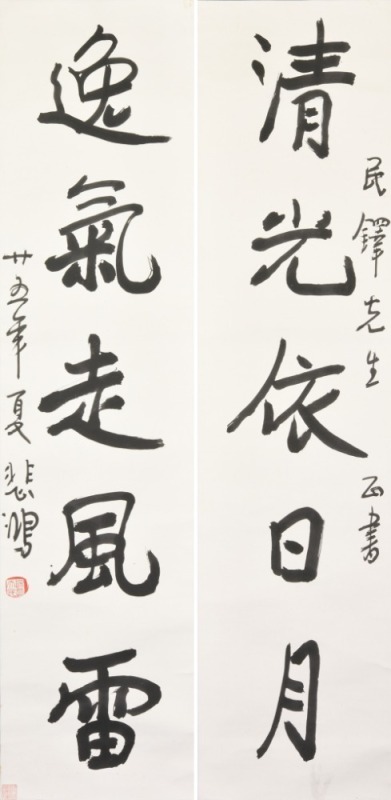 清光依日月
民鐸先生 正書
逸氣走風雷
廿五年夏 悲鴻